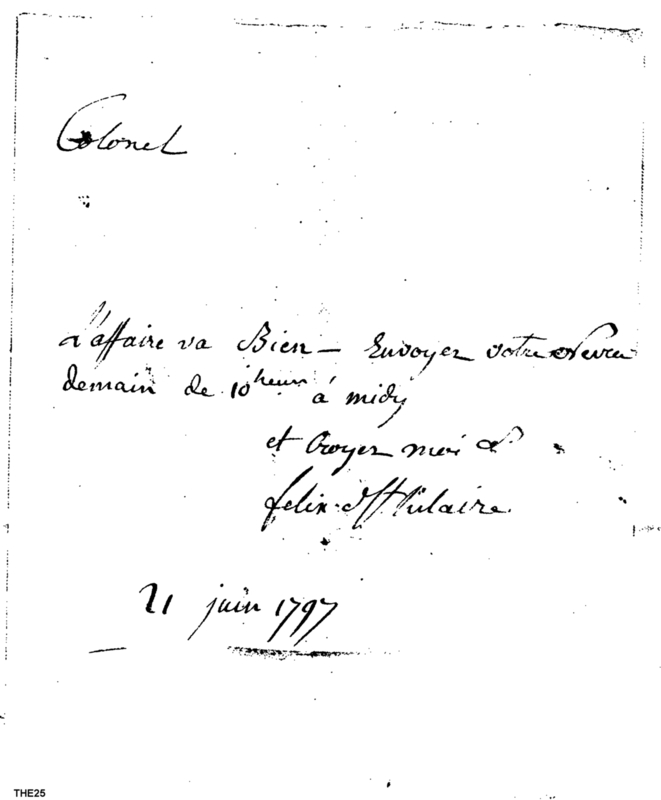 Colonel
L'affaire va Bien – Envoyez votre Neveu
demain de 10 heures à midy
et Croyez moi &
felix d'St hilaire
21 juin 1797
THE25